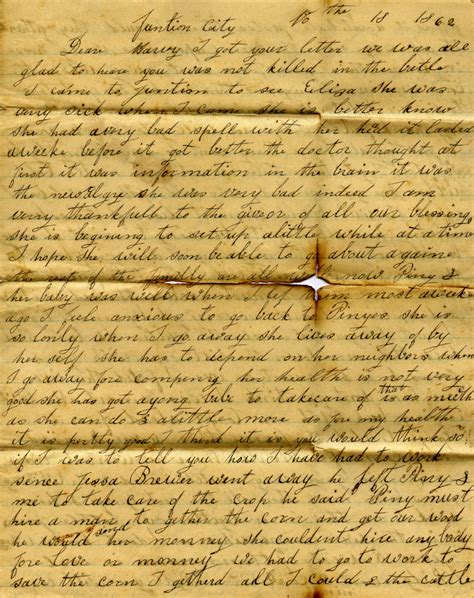 Juntion City No the 18 1862
Dear Harvy I got your letter we was all
glad to heare you was not killed in the battle
I came to Juntion to see Eliza she was
very sick when I came she is better know
she had avery bad spell with her hed it lasted
aweeke before it got better the doctor thought at
first it was information in the brain it was
the newrolgye she was very bad indeed I am
verry thankfull to the giveor of all our blessings
she is begining to set up alittle while at atime
I hope she will soon be able to go about againe
the rest of the familly are all well now Piny &
her baby was well when I left them most aweek
ago I fele anxious to go back to Pinyes she is
so lonly when I go away she lives away of by
her self she has to depend on her neighbors when
I go away fore compeny her health is not very
good she has got ayong babe to takecare of that is as mutch
as she can do & alittle more as for my health
it is pertty good I think it is you would think so
if I was to tell you how I have had to work
sence Jessa Brewer went away he left Piny &
me to take care of the crop he said Piny must
hire a man to gether the corn and get our wood
he would send her monney she couldent hire any body
fore love or monney we had to go to work to
save the corn I getherd all I could & the cattle